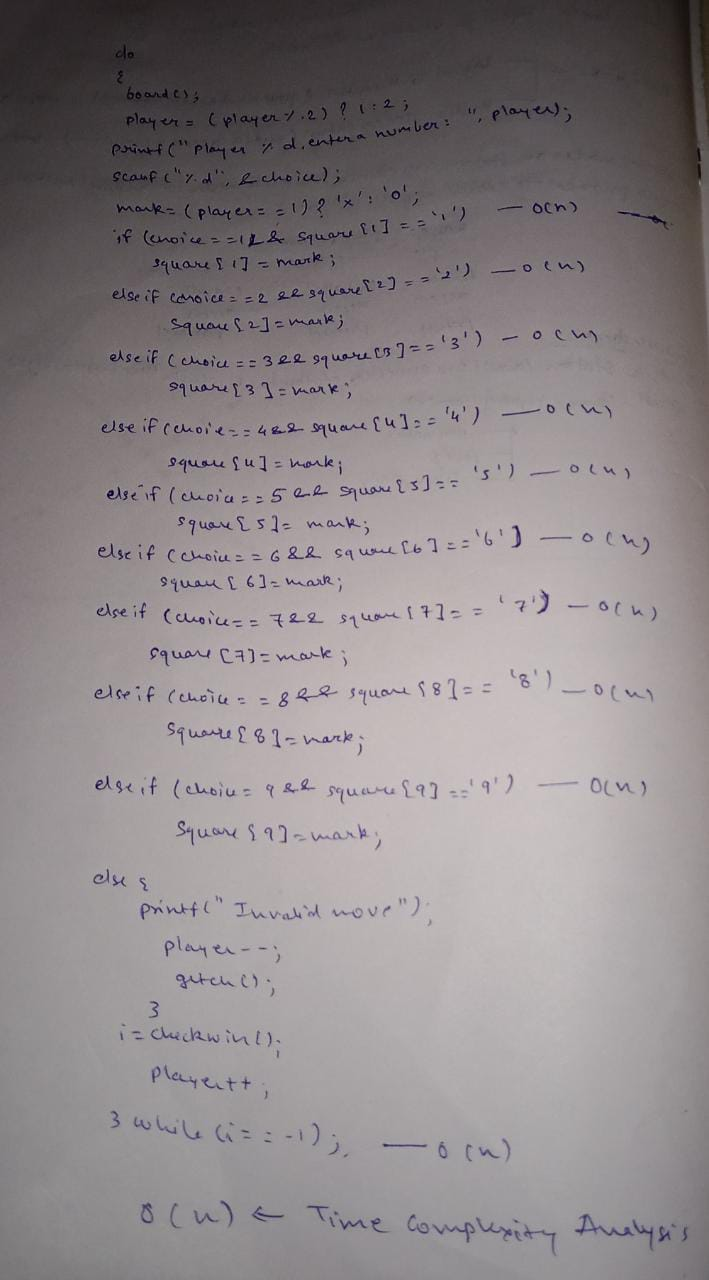 do
{
board();
player = (player % 2) ? 1 : 2;
printf(" Player % d, enter a number : ", player);
scanf ("%d", &choice);
mark = (player = = 1) ? 'x' : 'o';
if (choice = = 1 && square [1] = = '1') — o(n)
square [1] = mark;
else if (choice = = 2 && square [2] = = '2') — o(n)
Square [2] = mark;
else if (choice == 3 && square [3] == '3') — o(n)
square [3] = mark;
else if (choie == 4 && square [4] = = '4') — o(n)
square [4] = mark;
else if (choice = = 5 && square [5] == '5') — o(n)
square [5] = mark;
else if (choice = = 6 && square [6] == '6'] — o(n)
square [6] = mark;
else if (choice = = 7 && square [7] = = '7') — o(n)
square [7] = mark;
else if (choice = = 8 && square [8] = = '8') — o(n)
Square [8] = mark;
else if (choice = 9 && square [9] == '9') — O(n)
Square [9] = mark;
else {
printf(" Invalid move");
player--;
getch();
}
i = checkwin();
player++;
} while (i = = -1); — o(n)
O(n) ← Time Complexity Analysis